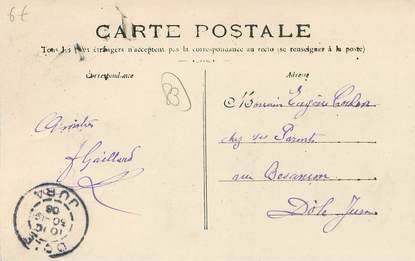 6€
CARTE POSTALE
Tous les pays étrangers n'acceptent pas la correspondance au recto (se renseigner à la poste)
Correspondance
83
Adresse
Amitiés
Gaillard
Monsieur Eugène
chez ses Parents
rue Besançon
Dôle Jura
DOLE
JURA